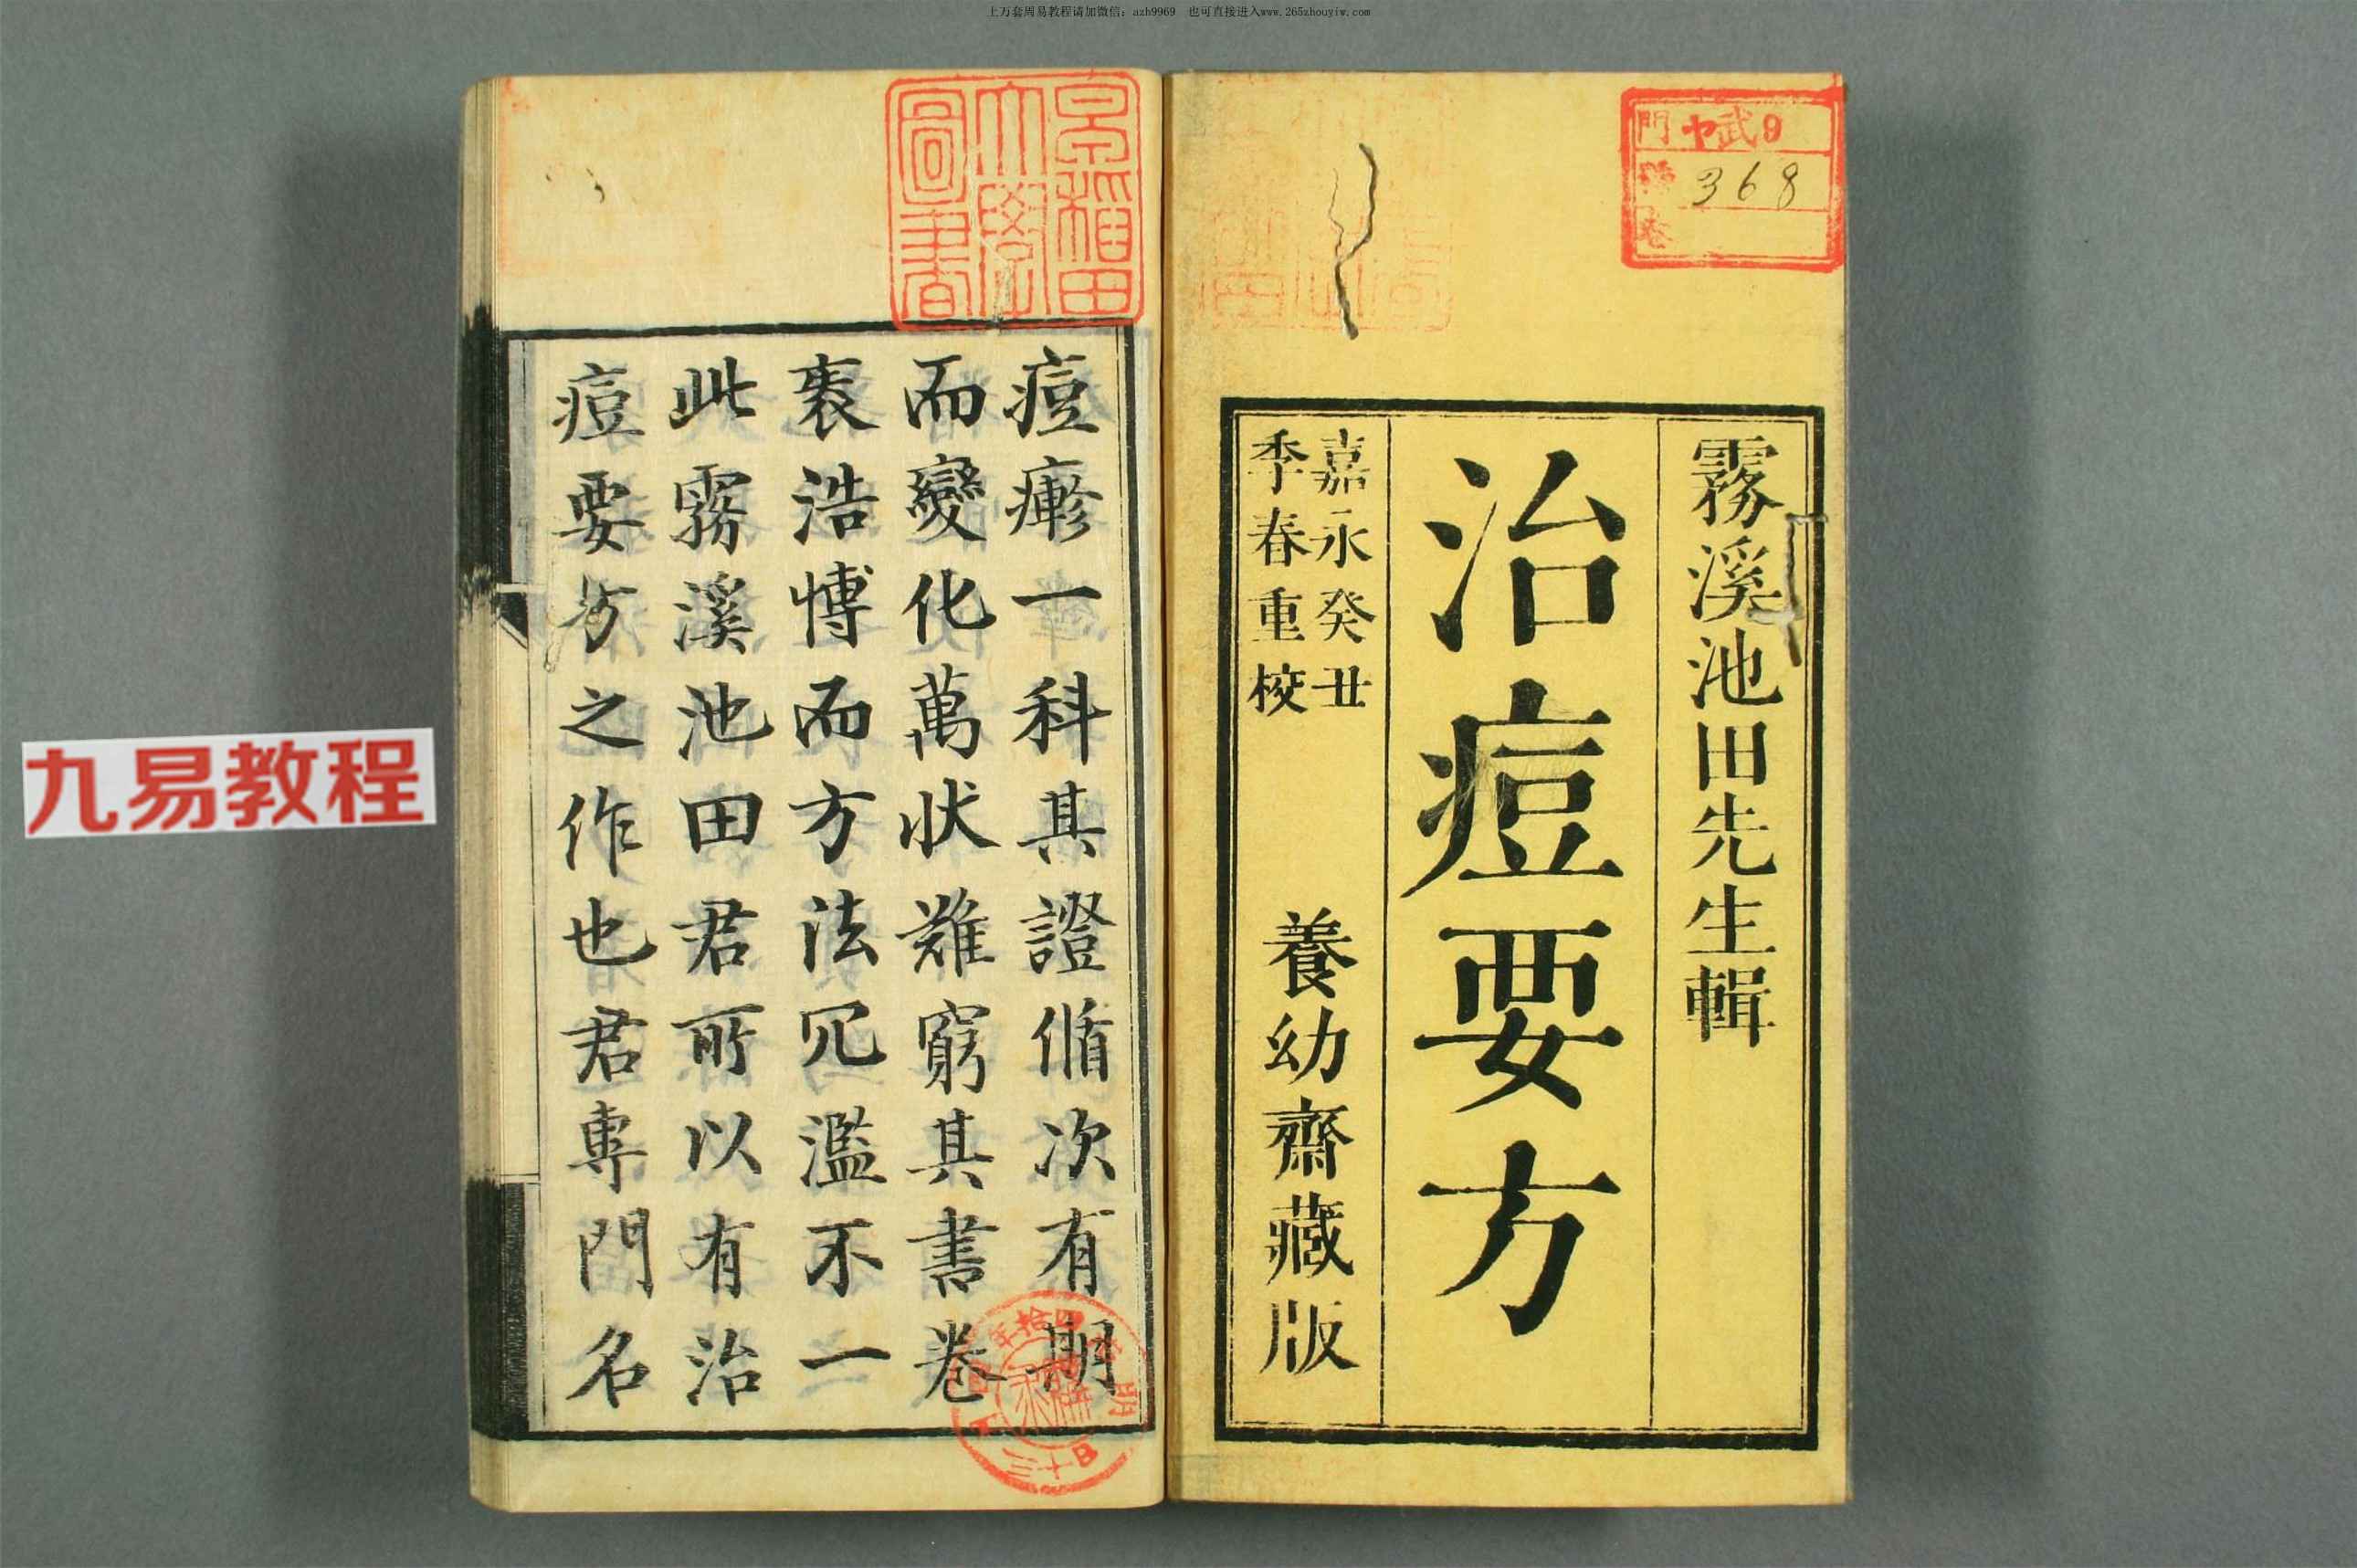 上万套周易教程请加微信：azh9969　也可直接进入www.265zhouyiw.com
門 ヤ武9
368
卷
霧溪池田先生輯
治痘要方
嘉永癸丑
季春重校
養幼齋藏版
早稲田
大學
圖書
痘疹一科其證脩次有期
而變化萬狀難窮其書卷
袠浩博而方法冗濫不一
此霧溪池田君所以有治
痘要方之作也君專門名
九易教程